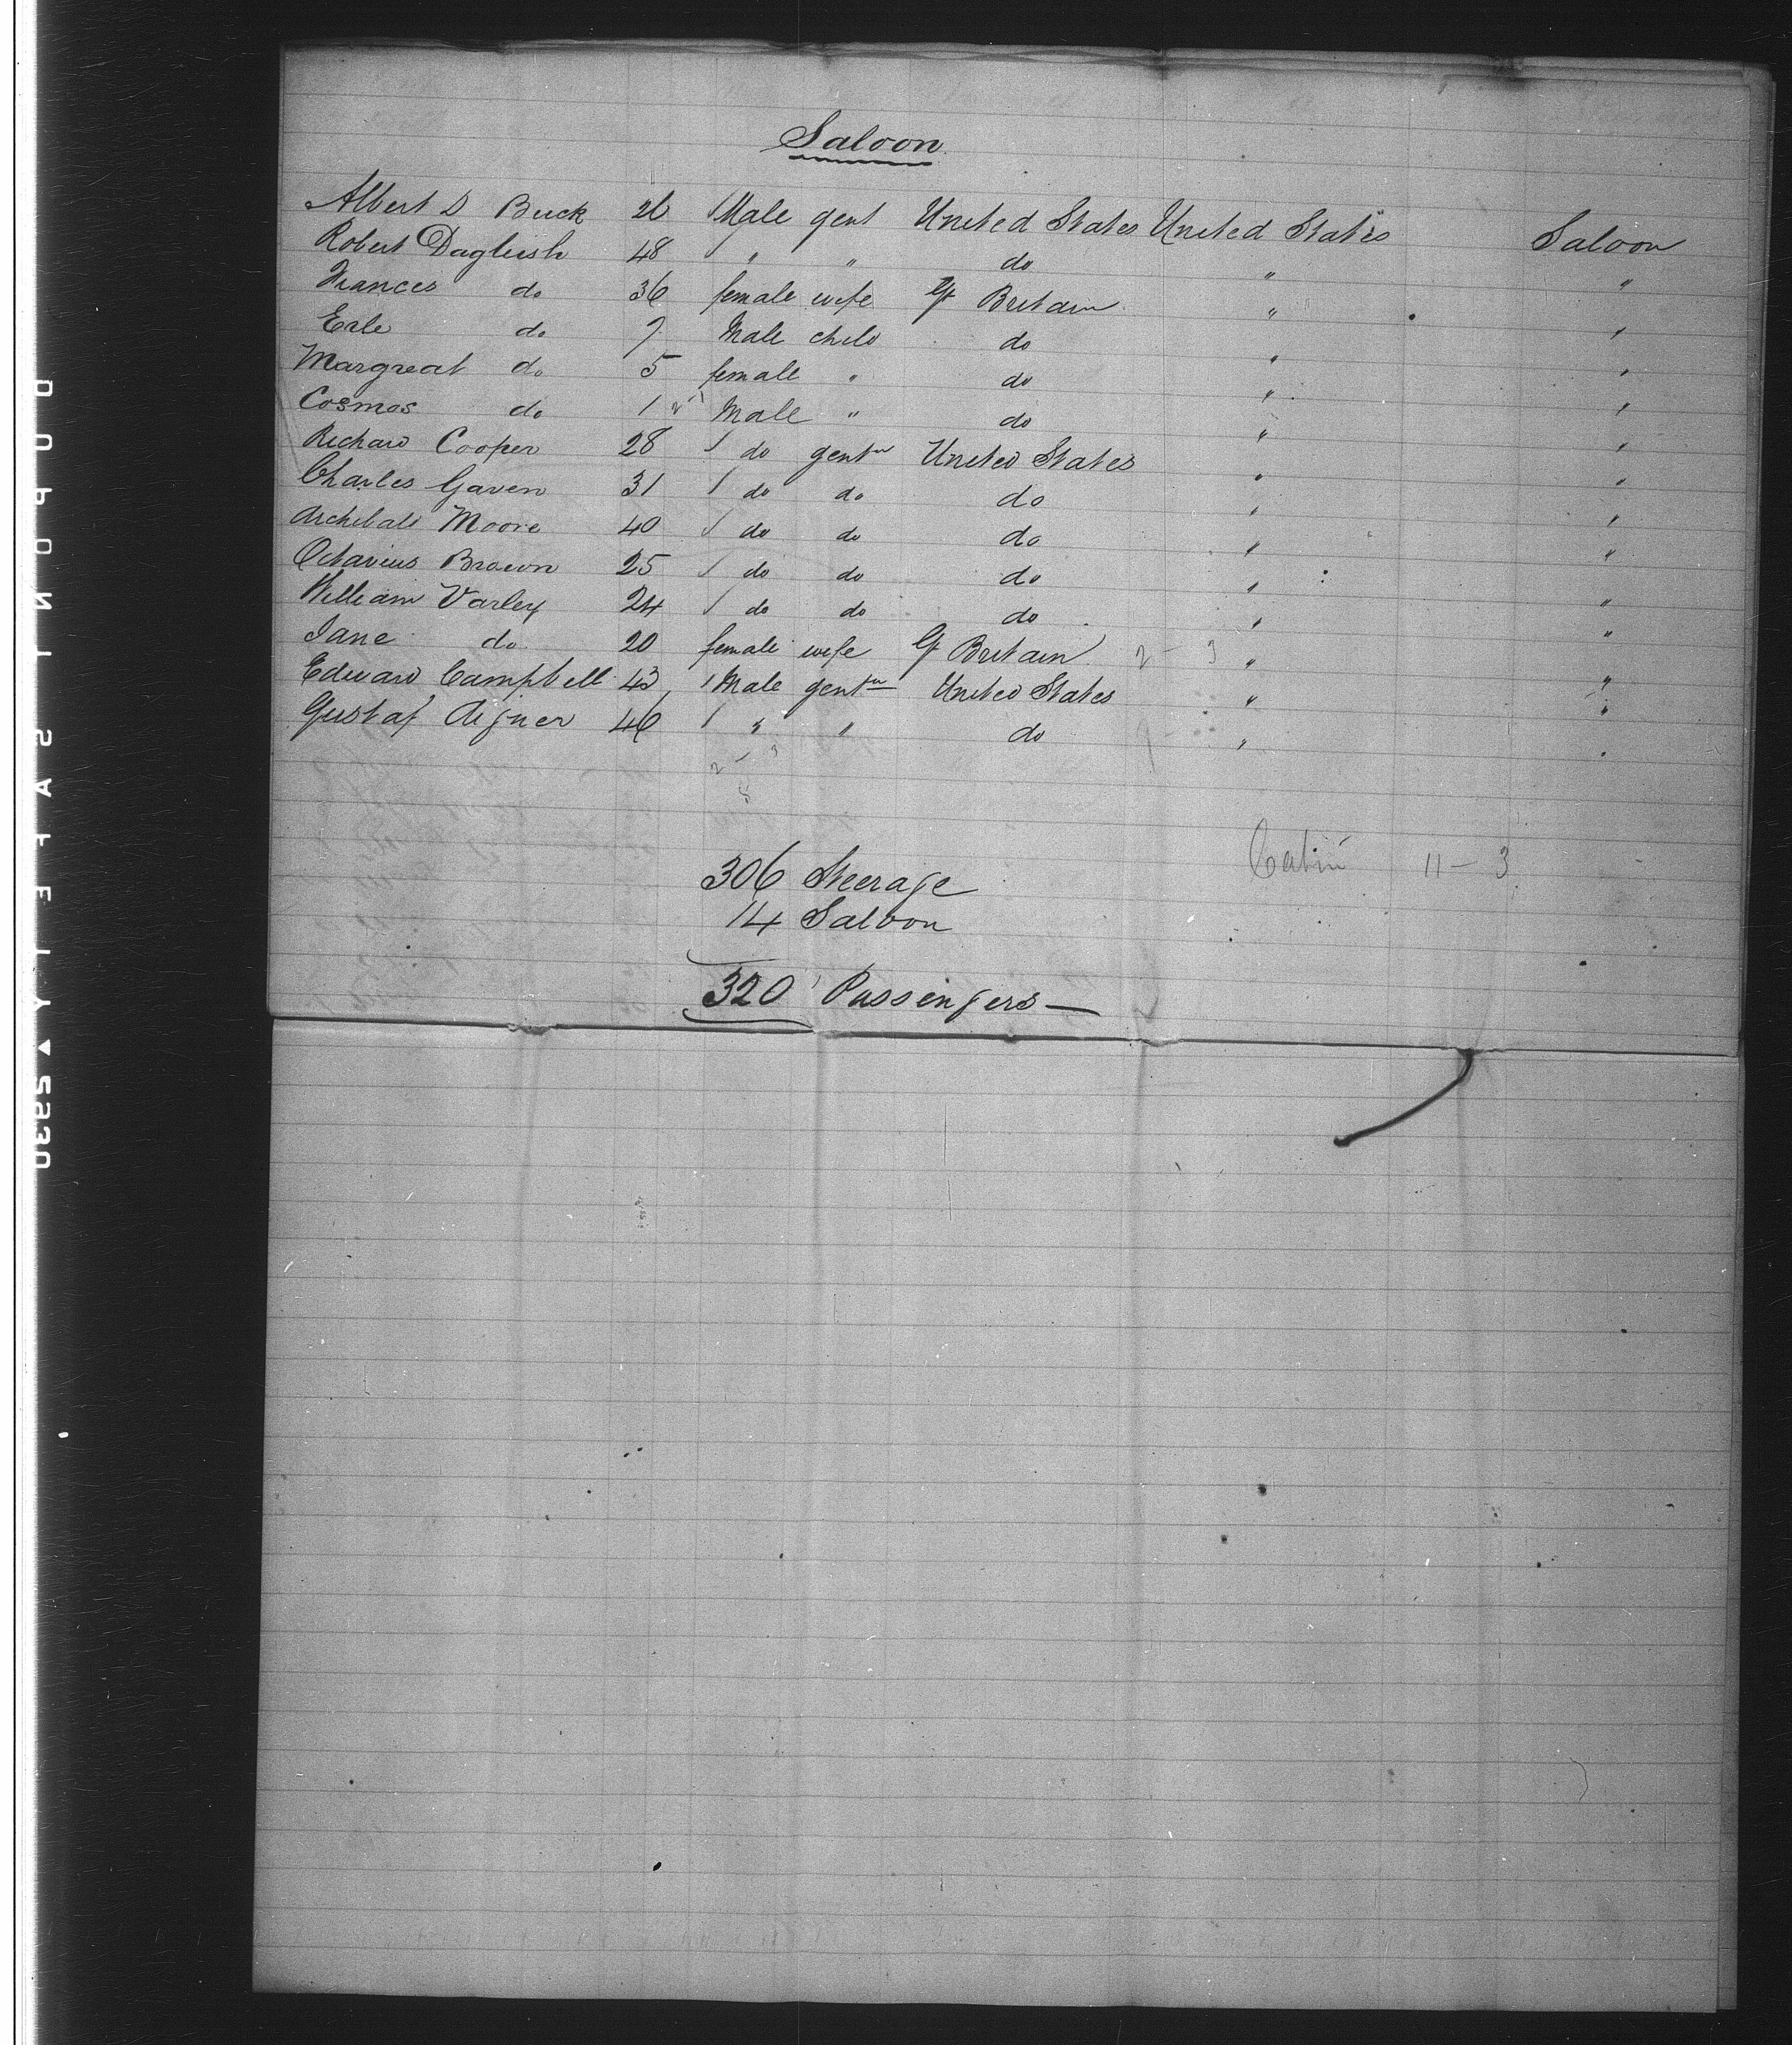 Saloon
Albert D Buck 26 Male gent United States United States Saloon
Robert Daglish 48 " " do " "
Frances do 36 female wife Gt Britain " "
Erle do 7 Male child do " "
Margreat do 5 female " do " "
Cosmos do 1 Male " do " "
Richard Cooper 28 do gentn United States " "
Charles Gaven 31 do do do " "
Archibald Moore 40 do do do " "
Octavius Brown 25 do do do " "
William Varley 24 do do do " "
Jane do 20 female wife Gt Britain 2 - 3 " "
Edward Campbell 43 Male gentn United States " "
Gustaf Aigner 46 " " do " "
2 - 3
Cabin 11 - 3
306 Steerage
14 Saloon
320 Passengers
DUPONT SAFETY S230